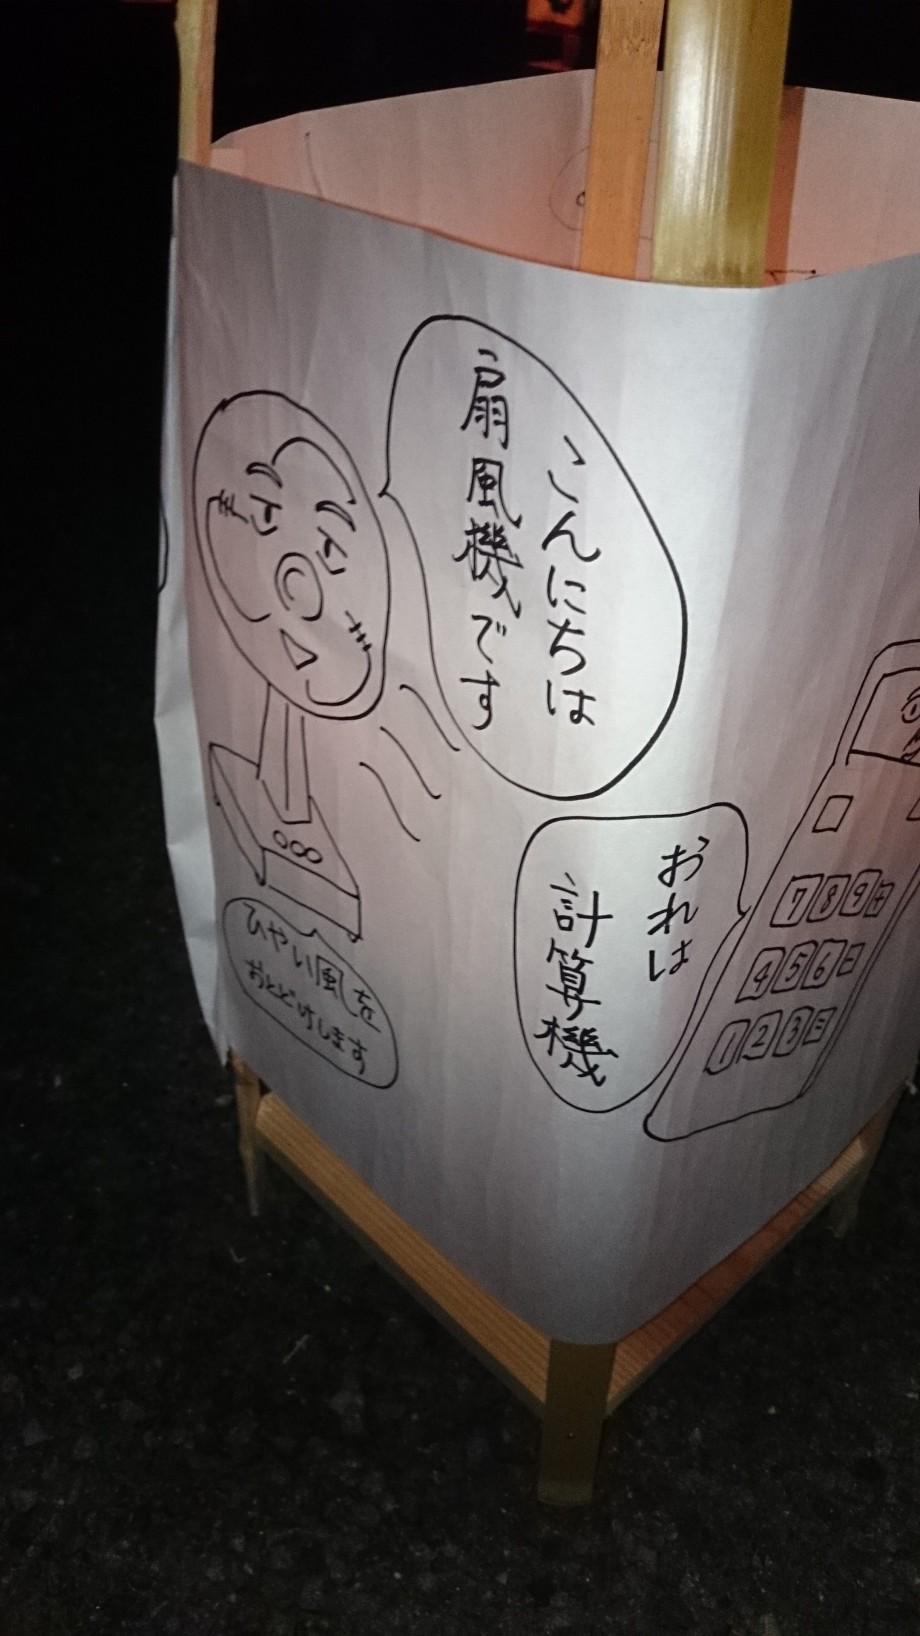 こんにちは
扇風機です
ひやい風を
おとどけします
おれは
計算機
789+
456-
123=